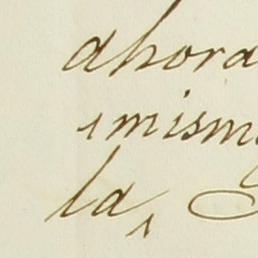 ahora
imism
la,